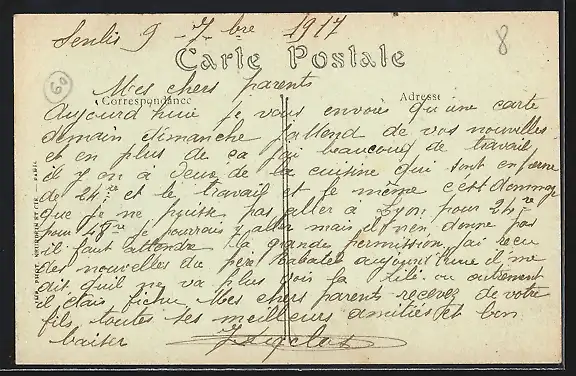 Senlis 9 - 7bre 1917
8
Carte Postale
60
Mes chers parents
Correspondance
Adresse
Aujourd hui je vous envois qu'une carte
demain dimanche j'attend de vos nouvelles
et en plus de ça j'ai beaucoup de travail
il y en a deux de la cuisine qui sont en perme
de 24 re et le travail est le même c'est dommage
que je ne puisse pas aller à Lyon pour 24 re
pour je pourrais y aller mais il n'en donne pas
il faut attendre la grande permission j'ai reçu
des nouvelles du père aujourd'hui il me
dit qu'il ne va plus voir la ou autrement
il était fichu. Mes chers parents recevez de votre
fils toutes ses meilleurs amitiés et bon
baiser
PHOT. NEURDEIN ET CIE. — PARIS